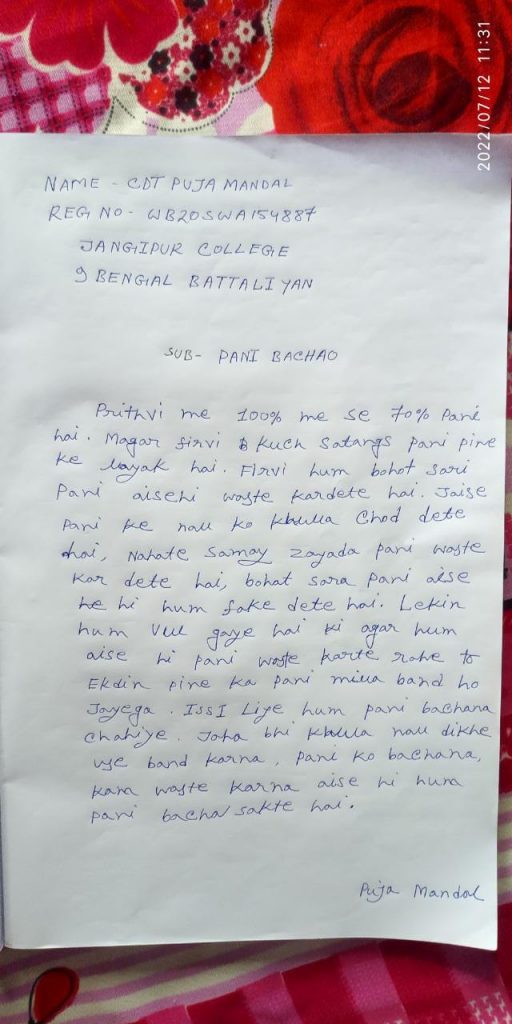 2022/07/12 11:31
NAME - CDT PUJA MANDAL
REG NO - WB20SWA154887
JANGIPUR COLLEGE
9 BENGAL BATTALIYAN
SUB- PANI BACHAO
Prithvi me 100% me se 70% Pani
hai. Magar firvi kuch satangs pani pine
ke layak hai. Firvi hum bohot sari
Pani aisehi waste kardete hai. Jaise
Pani ke nall ko khulla Chod dete
hai, Nahate samay zayada pani waste
kar dete hai, bohat sara pani aise
he hi hum fake dete hai. Lekin
hum vul gaye hai ki agar hum
aise hi pani waste karte rahe to
Ekdin pine ka pani milla band ho
Jayega. ISSI Liye hum pani bachana
chahiye. Jaha bhi khulla nall dikhe
use band karna, pani ko bachana,
kam waste karna aise hi hum
pani bacha sakte hai.
Puja Mandal